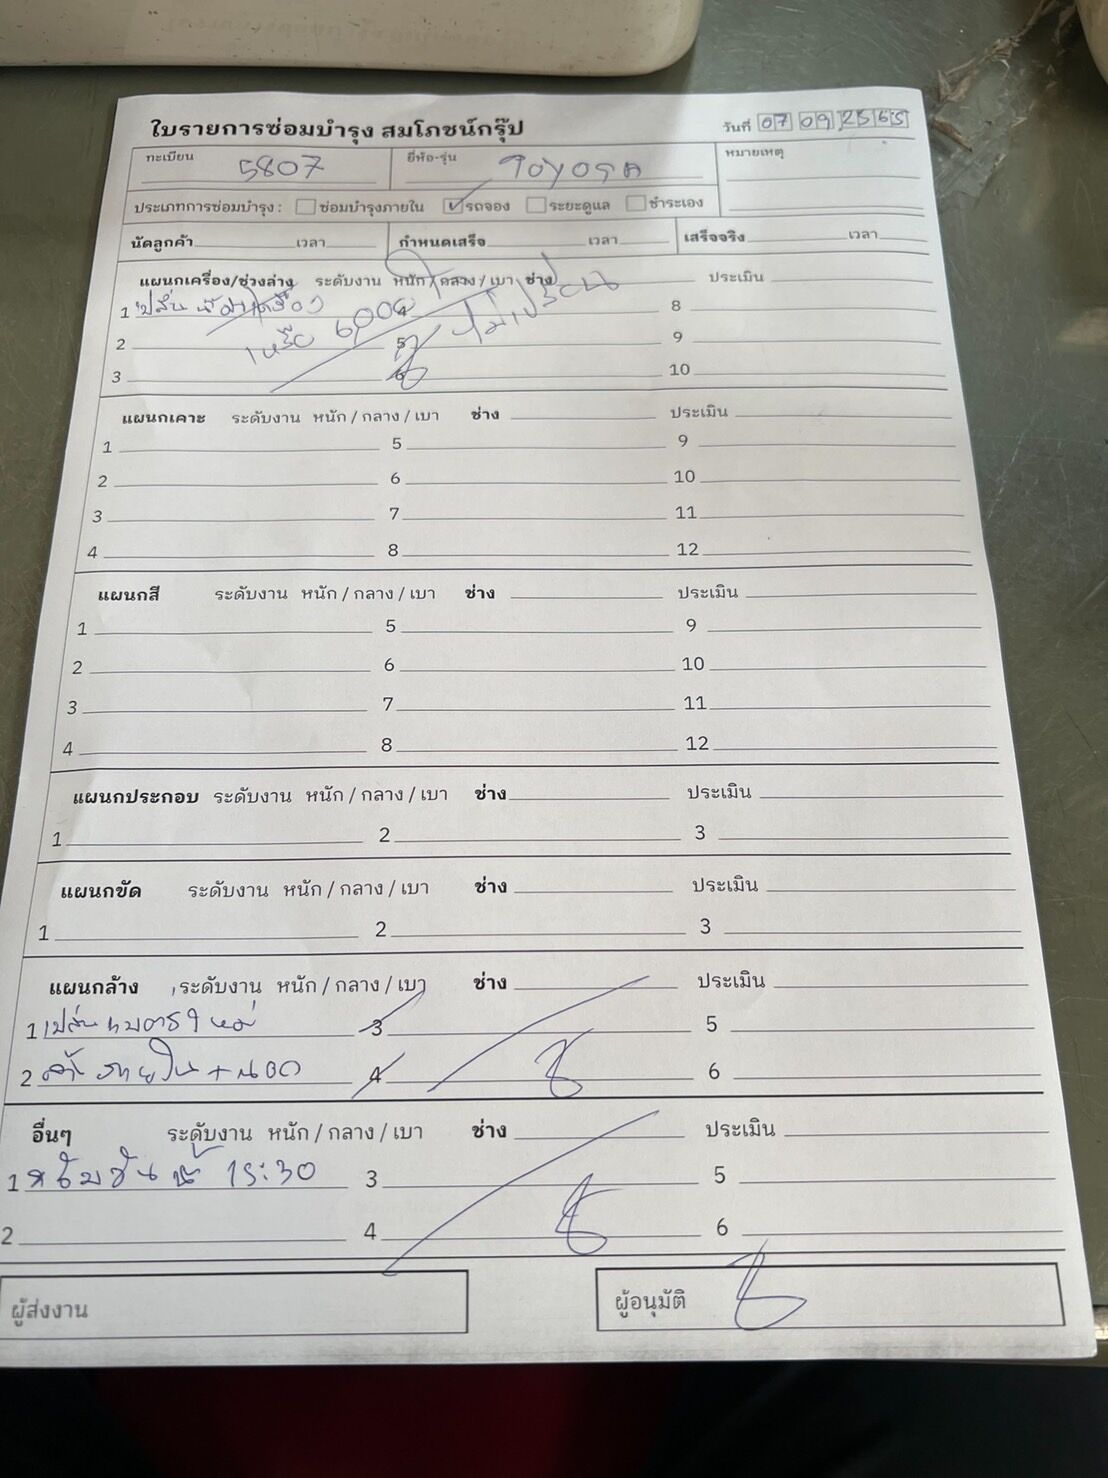 ใบรายการซ่อมบำรุง สมโภชน์กรุ๊ป
วันที่ 07 09 2565
ทะเบียน 5807 ยี่ห้อ-รุ่น TOYOTA หมายเหตุ
ประเภทการซ่อมบำรุง : ซ่อมบำรุงภายใน ✓ รถจอง ระยะดูแล ชำระเอง
นัดลูกค้า เวลา กำหนดเสร็จ เวลา เสร็จจริง เวลา
แผนกเครื่อง/ช่วงล่าง ระดับงาน หนัก / กลาง / เบา ช่าง ประเมิน
1 4 8
เหลือ 6000 ไม่เปลี่ยน
2 5 9
3 6 10
แผนกเคาะ ระดับงาน หนัก / กลาง / เบา ช่าง ประเมิน
1 5 9
2 6 10
3 7 11
4 8 12
แผนกสี ระดับงาน หนัก / กลาง / เบา ช่าง ประเมิน
1 5 9
2 6 10
3 7 11
4 8 12
แผนกประกอบ ระดับงาน หนัก / กลาง / เบา ช่าง ประเมิน
1 2 3
แผนกขัด ระดับงาน หนัก / กลาง / เบา ช่าง ประเมิน
1 2 3
แผนกล้าง ระดับงาน หนัก / กลาง / เบา ช่าง ประเมิน
1 เปลี่ยนแบตใหม่ 3 5
2 ล้างภายใน + นอก 4 6
อื่นๆ ระดับงาน หนัก / กลาง / เบา ช่าง ประเมิน
1 15:30 3 5
2 4 6
ผู้ส่งงาน ผู้อนุมัติ